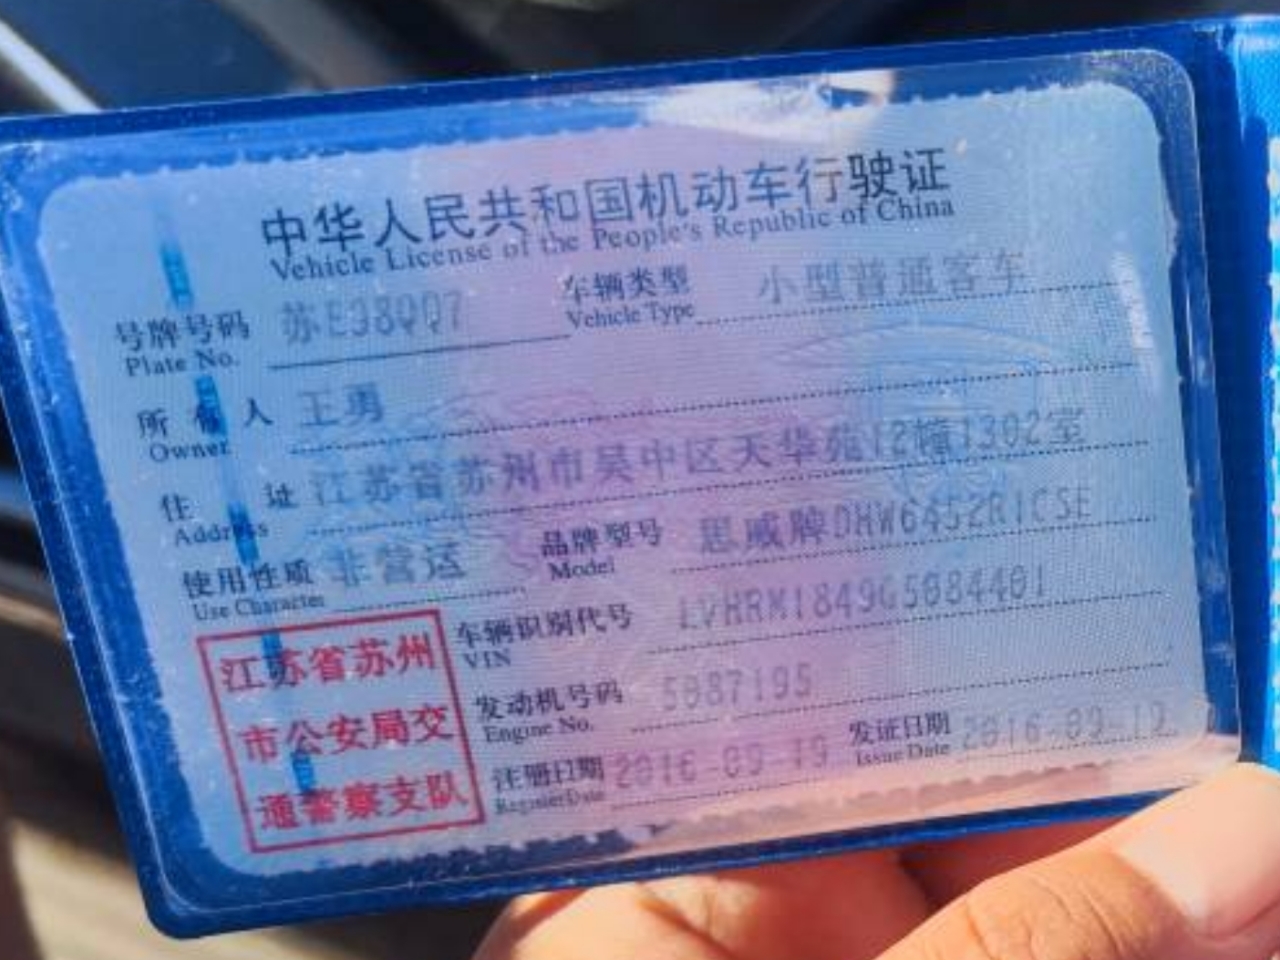 中华人民共和国机动车行驶证
Vehicle License of the People's Republic of China
号牌号码 苏E38QQ7 车辆类型 小型普通客车
Plate No. Vehicle Type
所有人 王勇
Owner
住址 江苏省苏州市吴中区天华苑12幢1302室
Address
使用性质 非营运 品牌型号 思威牌DHW6452R1CSE
Use Character Model
车辆识别代号 LVHRM1849G5084401
VIN
发动机号码 5087195
Engine No.
注册日期 2016-09-19 发证日期 2016-09-19
Register Date Issue Date
江苏省苏州
市公安局交
通警察支队